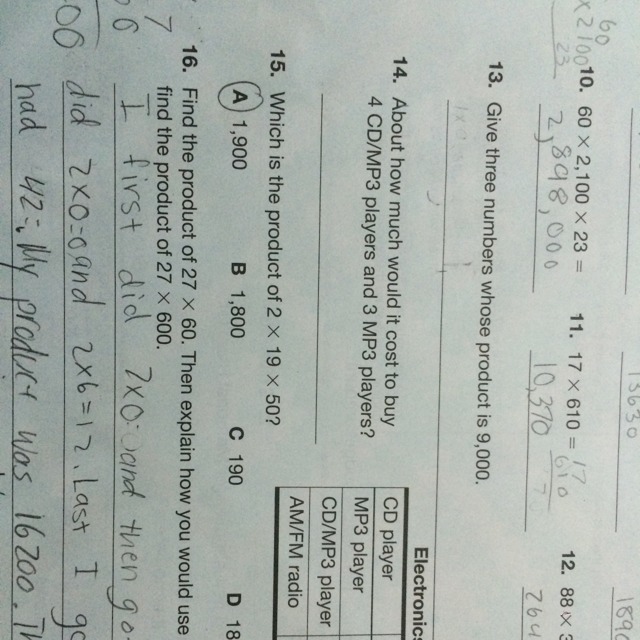 13630
189
60
x2100
23
10. 60 × 2,100 × 23 =
2,898,000
11. 17 × 610 =
10,370
17
610
12. 88 ×
264
13. Give three numbers whose product is 9,000.
14. About how much would it cost to buy
4 CD/MP3 players and 3 MP3 players?
Electronics
CD player
MP3 player
CD/MP3 player
AM/FM radio
15. Which is the product of 2 × 19 × 50?
A 1,900
B 1,800
C 190
D 18
16. Find the product of 27 × 60. Then explain how you would use
find the product of 27 × 600.
I first did 7x0=0 and then go
did 2x0=0 and 2x6=12. Last I
had 42=. My product was 16200. Th